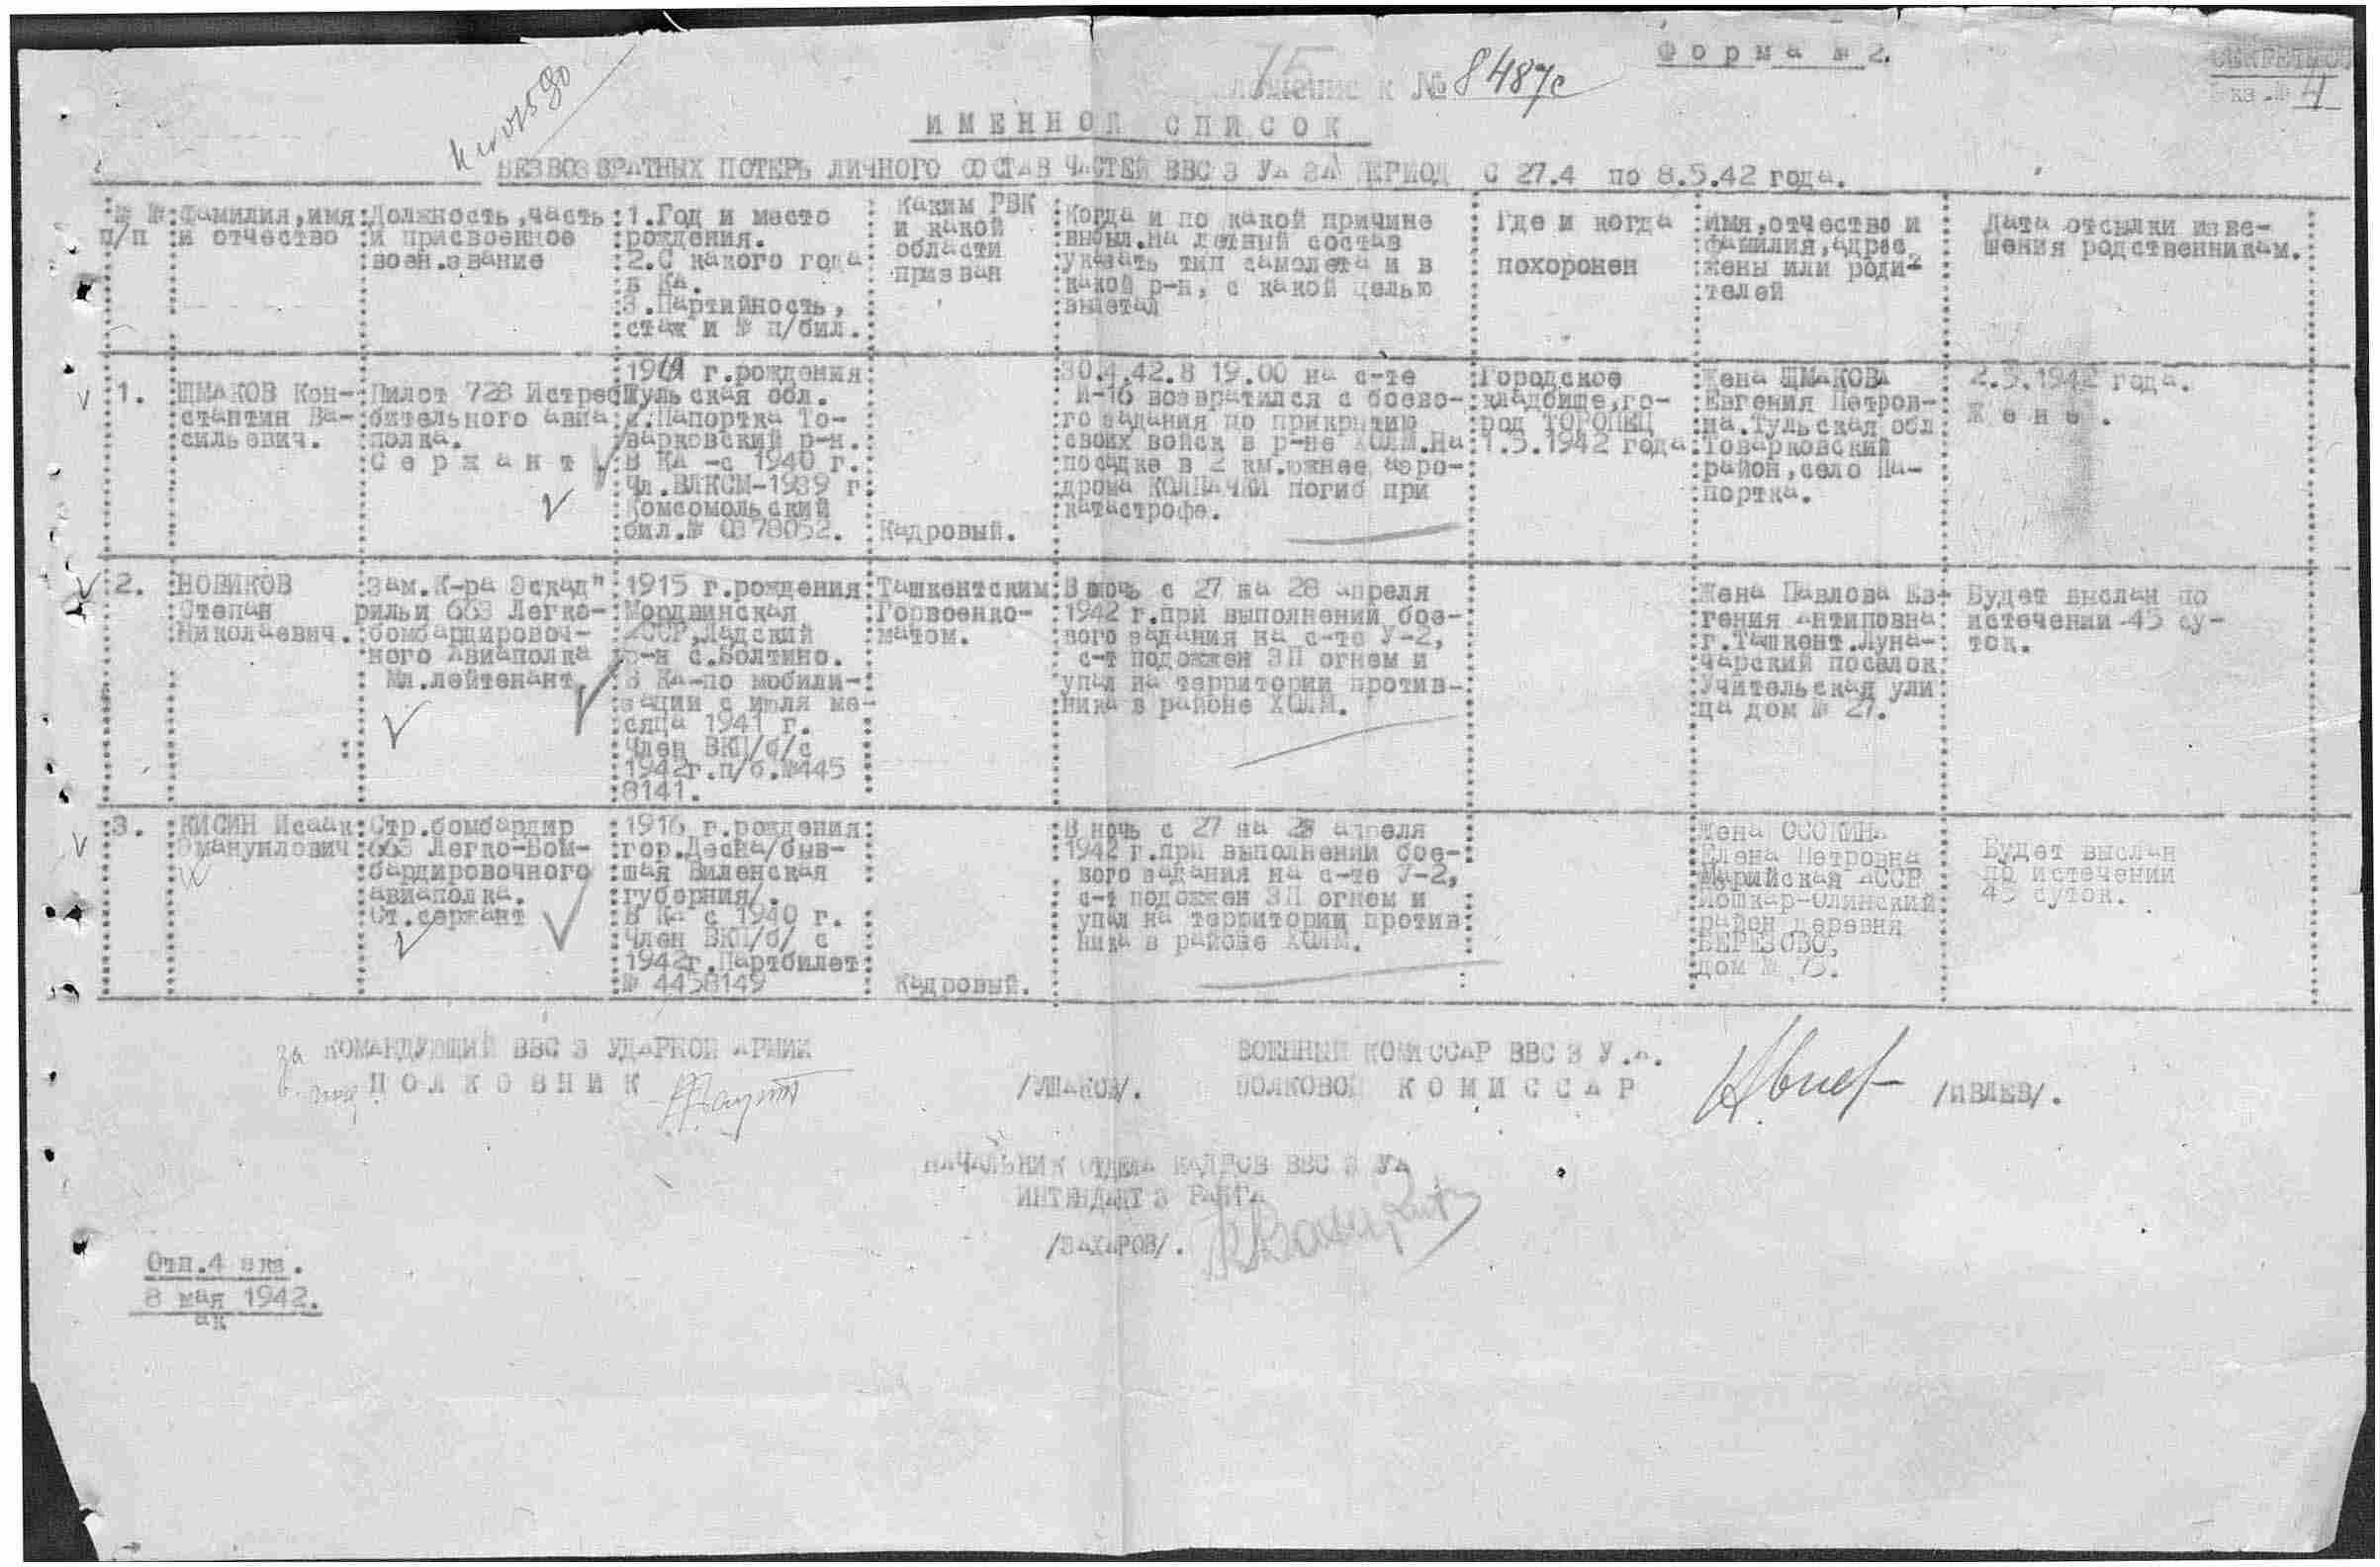 Форма № 2.
СЕКРЕТНО
Экз.№ 4
15
к № 8487с
ИМЕННОЙ СПИСОК
БЕЗВОЗВРАТНЫХ ПОТЕРЬ ЛИЧНОГО СОСТАВ ЧАСТЕЙ ВВС 3 УА ЗА ПЕРИОД С 27.4 по 8.5.42 года.
№ №
п/п
Фамилия,имя
и отчество
Должность,часть
и присвоенное
воен.звание
1.Год и место
рождения.
2.С какого года
в КА.
3.Партийность,
стаж и № п/бил.
Каким РВК
и какой
области
призван
Когда и по какой причине
выбыл.На летный состав
указать тип самолета и в
какой р-н, с какой целью
вылетал
Где и когда
похоронен
Имя,отчество и
фамилия,адрес
жены или роди-
телей
Дата отсылки изве-
щения родственникам.
1.
ШМАКОВ Кон-
стантин Ва-
сильевич.
Пилот 728 Истре
бительного авиа
полка.
Сержант
1919 г.рождения
Тульская обл.
с.Папортка То-
варковский р-н.
В КА -с 1940 г.
Чл.ВЛКСМ-1939 г.
Комсомольский
бил.№ 0378052.
Кадровый.
30.4.42.в 19.00 на с-те
И-16 возвратился с боево-
го задания по прикрытию
своих войск в р-не ХОЛМ.На
посадке в 2 км.южнее аэро-
дрома КОЛПАЧКИ погиб при
катастрофе.
Городское
кладбище,го-
род ТОРОПЕЦ
1.5.1942 года
Жена ШМАКОВА
Евгения Петров-
на.Тульская обл
Товарковский
район,село Па-
портка.
2.5.1942 года.
Жене.
2.
НОВИКОВ
Степан
Николаевич.
Зам.К-ра Эскад"
рильи 663 Легко-
бомбардировоч-
ного Авиаполка
Мл.лейтенант
1915 г.рождения
Мордвинская
АССР,Ладский
р-н с.Болтино.
В КА-по мобили-
зации с июля ме-
сяца 1941 г.
Член ВКП/б/с
1942г.п/б.№445
8141.
Ташкентским
Горвоенко-
матом.
В ночь с 27 на 28 апреля
1942 г.при выполнений бое-
вого задания на с-те У-2,
с-т подожжен ЗП огнем и
упал на территории против-
ника в районе ХОЛМ.
Жена Павлова Ев-
гения Антиповна
г.Ташкент.Луна-
чарский поселок
Учительская ули
ца дом № 27.
Будет выслан по
истечении 45 су-
ток.
3.
КИСИН Исаак
Эмануилович
Стр.бомбардир
663 Легко-Бом-
бардировочного
авиаполка.
Ст.сержант
1916 г.рождения
гор.Десна/быв-
шая Виленская
губерния/.
В КА с 1940 г.
Член ВКП/б/ с
1942г.Партбилет
№ 4458149
Кадровый.
В ночь с 27 на 28 апреля
1942 г.при выполнении бое-
вого задания на с-те У-2,
с-т подожжен ЗП огнем и
упал на территории против
ника в районе ХОЛМ.
Жена ОСОКИНА
Елена Петровна
Марийская АССР
Йошкар-Олинский
район деревня
БЕРЕЗОВО,
дом № 75.
Будет выслан
по истечении
45 суток.
за КОМАНДУЮЩИЙ ВВС 3 УДАРНОЙ АРМИИ
ПОЛКОВНИК
/УШАКОВ/.
ВОЕННЫЙ КОМИССАР ВВС 3 У.А.
ПОЛКОВОЙ КОМИССАР
/ИВЛЕВ/.
НАЧАЛЬНИК ОТДЕЛА КАДРОВ ВВС 3 УА
ИНТЕНДАНТ 3 РАНГА
/ЗАХАРОВ/.
Отп.4 экз.
8 мая 1942.
ак